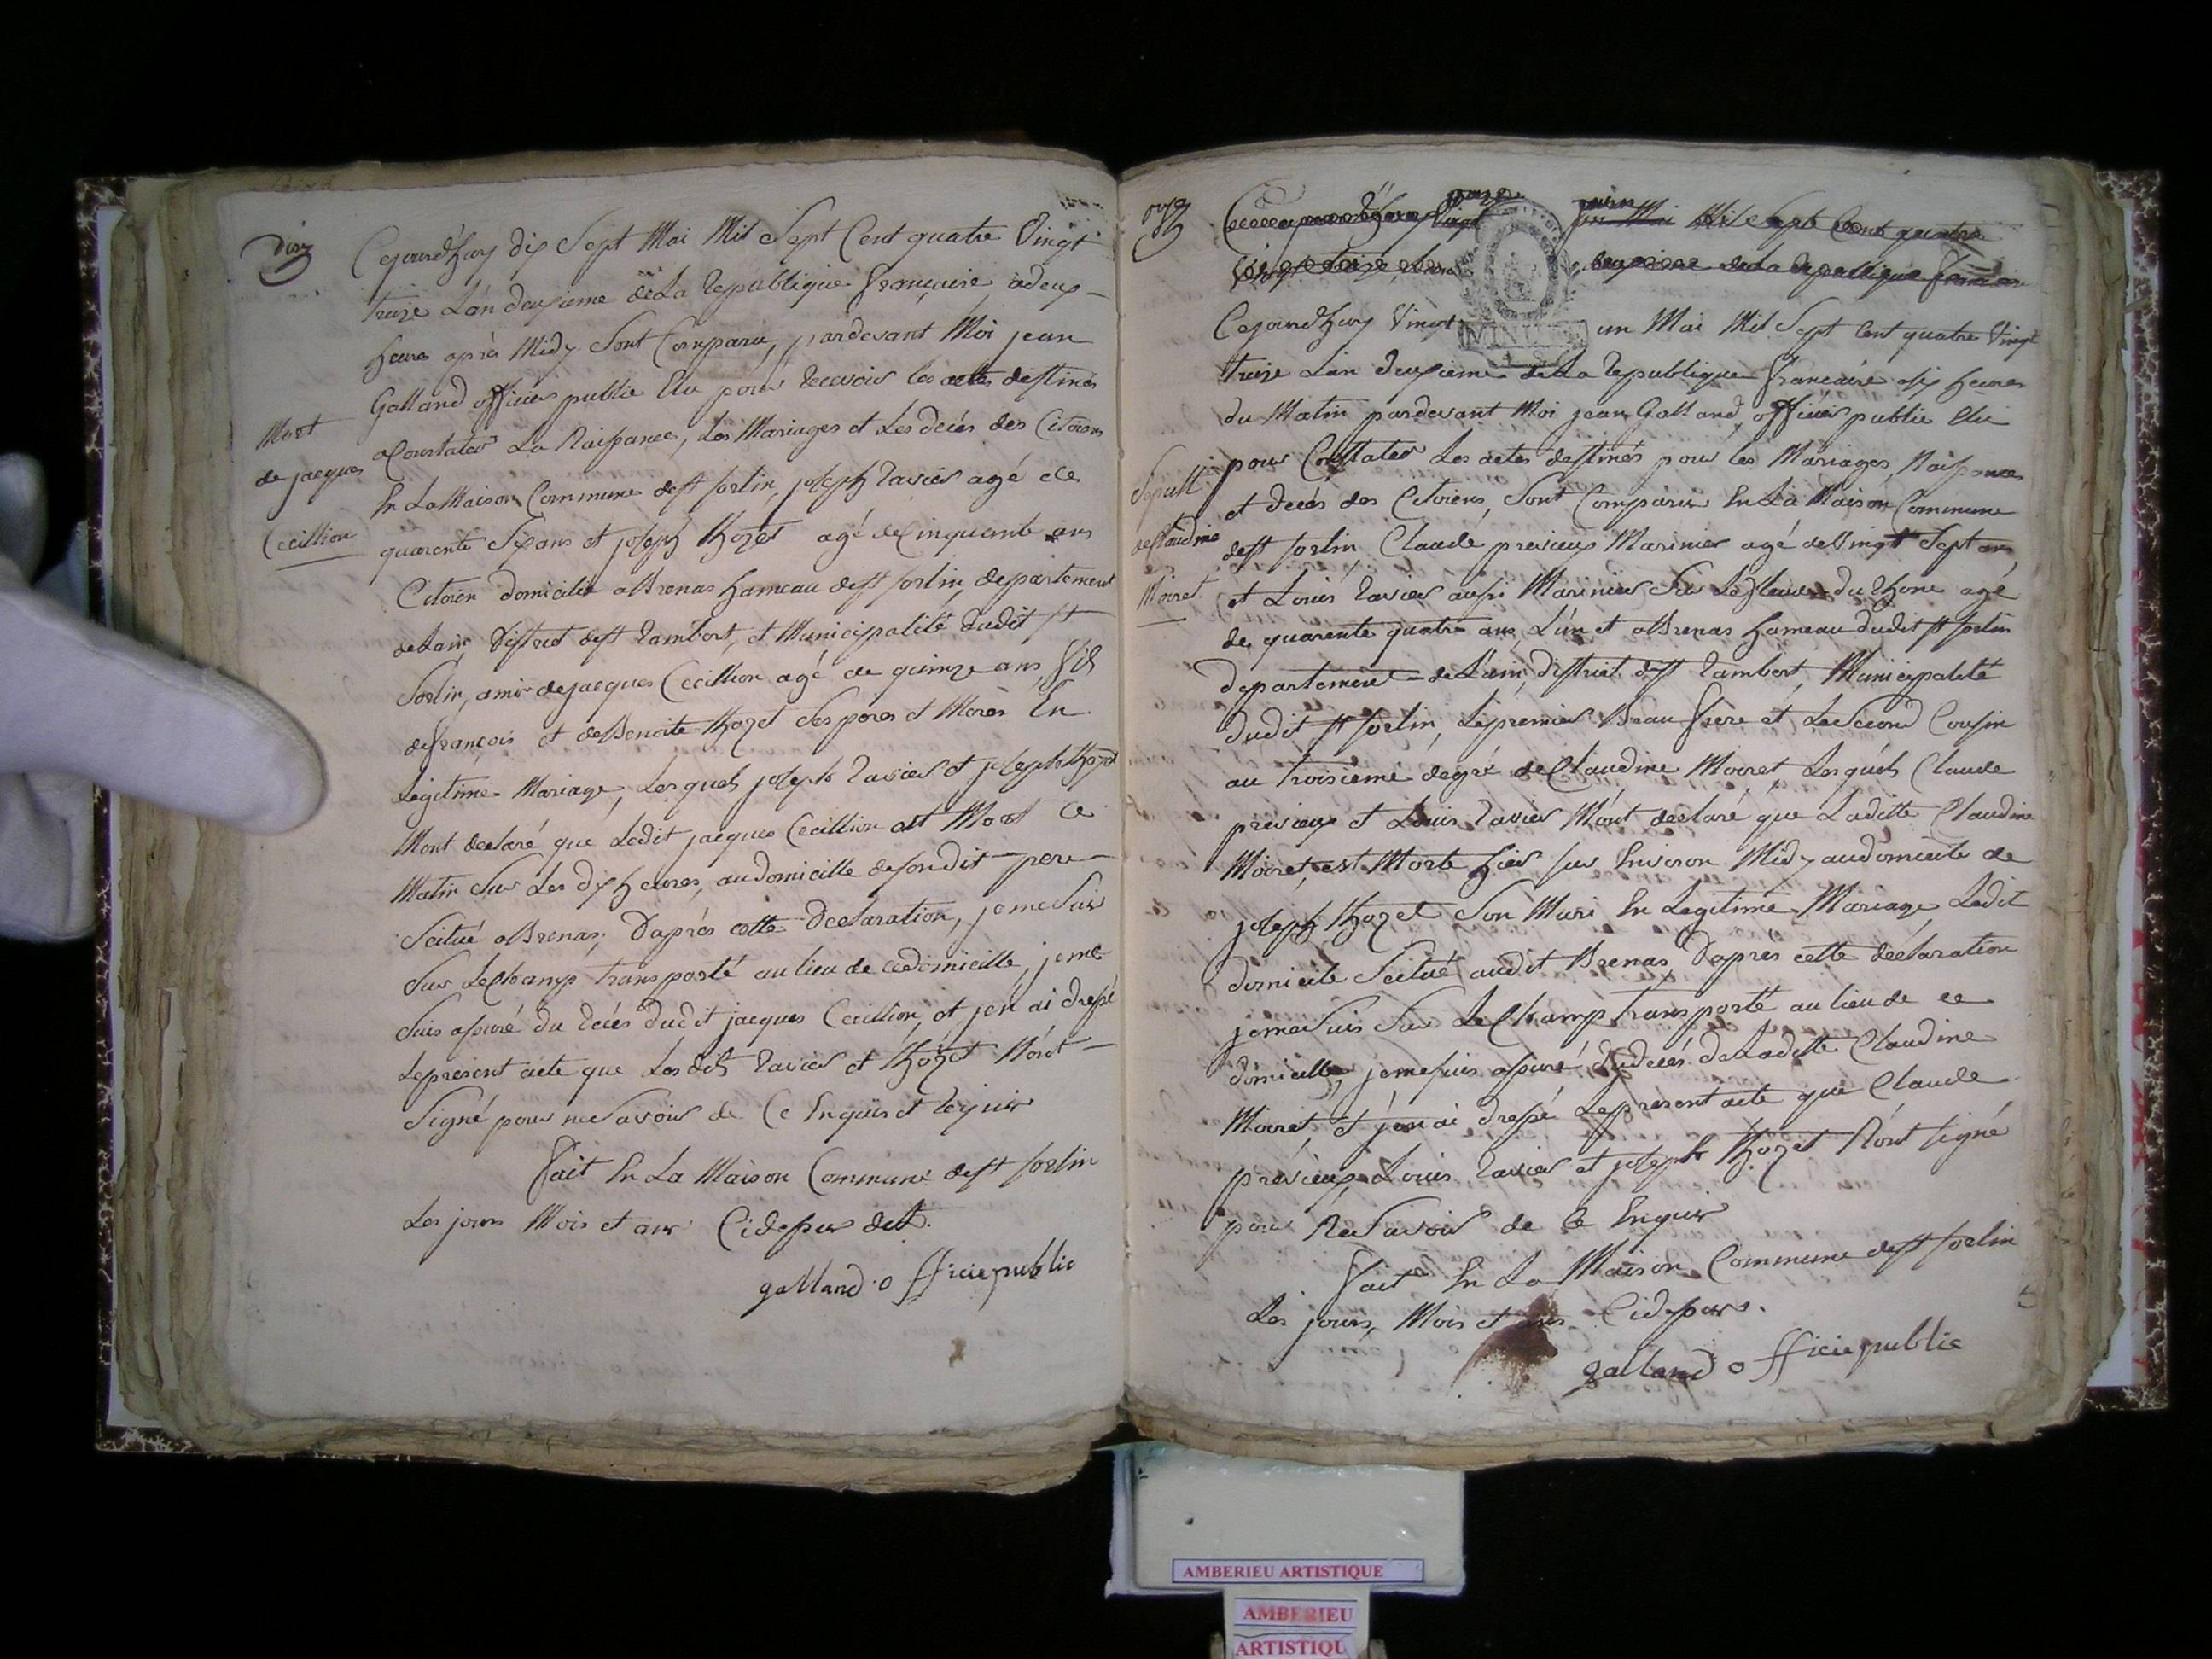 dix
Cejourd'huy dix Sept Mai Mil Sept Cent quatre Vingt
treize L'an deuxieme de La republique française, a deux
heures après Midy Sont Comparu, pardevant Moi jean
Galland officier public Elu pour recevoir les actes destinés
a Constater La Naissance, Les Mariages et Les decès des Citoiens
En La Maison Commune de st sorlin, joseph ravier agé de
quarente Six ans et joseph thozet agé de Cinquante ans
Citoien domicilié a Brenas hameau de st sorlin, departement
de Lain, district de st rambert, et Municipalité dudit st
Sorlin, amis de jacques Cecillion agé de quinze ans, fils
de françois et de Benoite thozet Ses peres et Meres En
Legitime Mariage, Lesquels joseph ravier et joseph thozet
Mont declaré que Ledit jacques Cecillion est Mort Ce
Matin Sur Les dix heures, au domicille de son dit pere
Scitué a Brenas, D'après cette Declaration, je me Suis
Sur Le Champ transporté au lieu de ce domicille, je me
Suis assuré du decès dudit jacques Cecillion, et j'en ai dressé
Le present acte que Les dits ravier et thozet N'ont
Signé pour ne Savoir de Ce Enquis et requis
Fait En La Maison Commune de st sorlin
Les jours Mois et ans Cidessus dit.
galland officie public
Mort
de jacques
Cecillion
onze
onze juin
Mil Sept Cent quatre
de La republique francaise
Cejourd'huy Vingt un Mai Mil Sept Cent quatre Vingt
treize L'an deuxieme de La republique francaise a six heures
du Matin pardevant Moi jean Galland, officier public Elu
pour Constater Les actes destinés pour les Mariages, Naissances
et decès des Citoiens, Sont Comparus En La Maison Commune
de st sorlin Claude previeux Marinier agé de Vingt Sept ans
et Louis ravier aussi Marinier Sur Le fleuve du rhone agé
de quarente quatre ans, L'un et a Brenas hameau dudit st sorlin
departement de L'ain, district de st rambert, Municipalité
dudit st sorlin, Le premier Beau frere et Le Second Cousin
au troisieme degré de Claudine Moiret, Lesquels Claude
previeux et Louis ravier M'ont declaré que Ladite Claudine
Moiret, est Morte hier sur Environ Midy au domicile de
joseph thozet Son Mari En Legitime Mariage Ledit
domicile Scitué audit Brenas, D'apres cette declaration
je me Suis Sur Le Champ transporté au lieu de ce
domicille, je me suis assuré du decès de Ladite Claudine
Moiret, et j'en ai dressé Le present acte que Claude
previeux, Louis ravier et joseph thozet N'ont signé
pour Ne Savoir de Ce Enquis
Fait En La Maison Commune de st sorlin
Les jours, Mois et ans Cidessus.
galland officie public
Sepult
de Claudine
Moiret
AMBERIEU ARTISTIQUE
AMBERIEU
ARTISTIQU